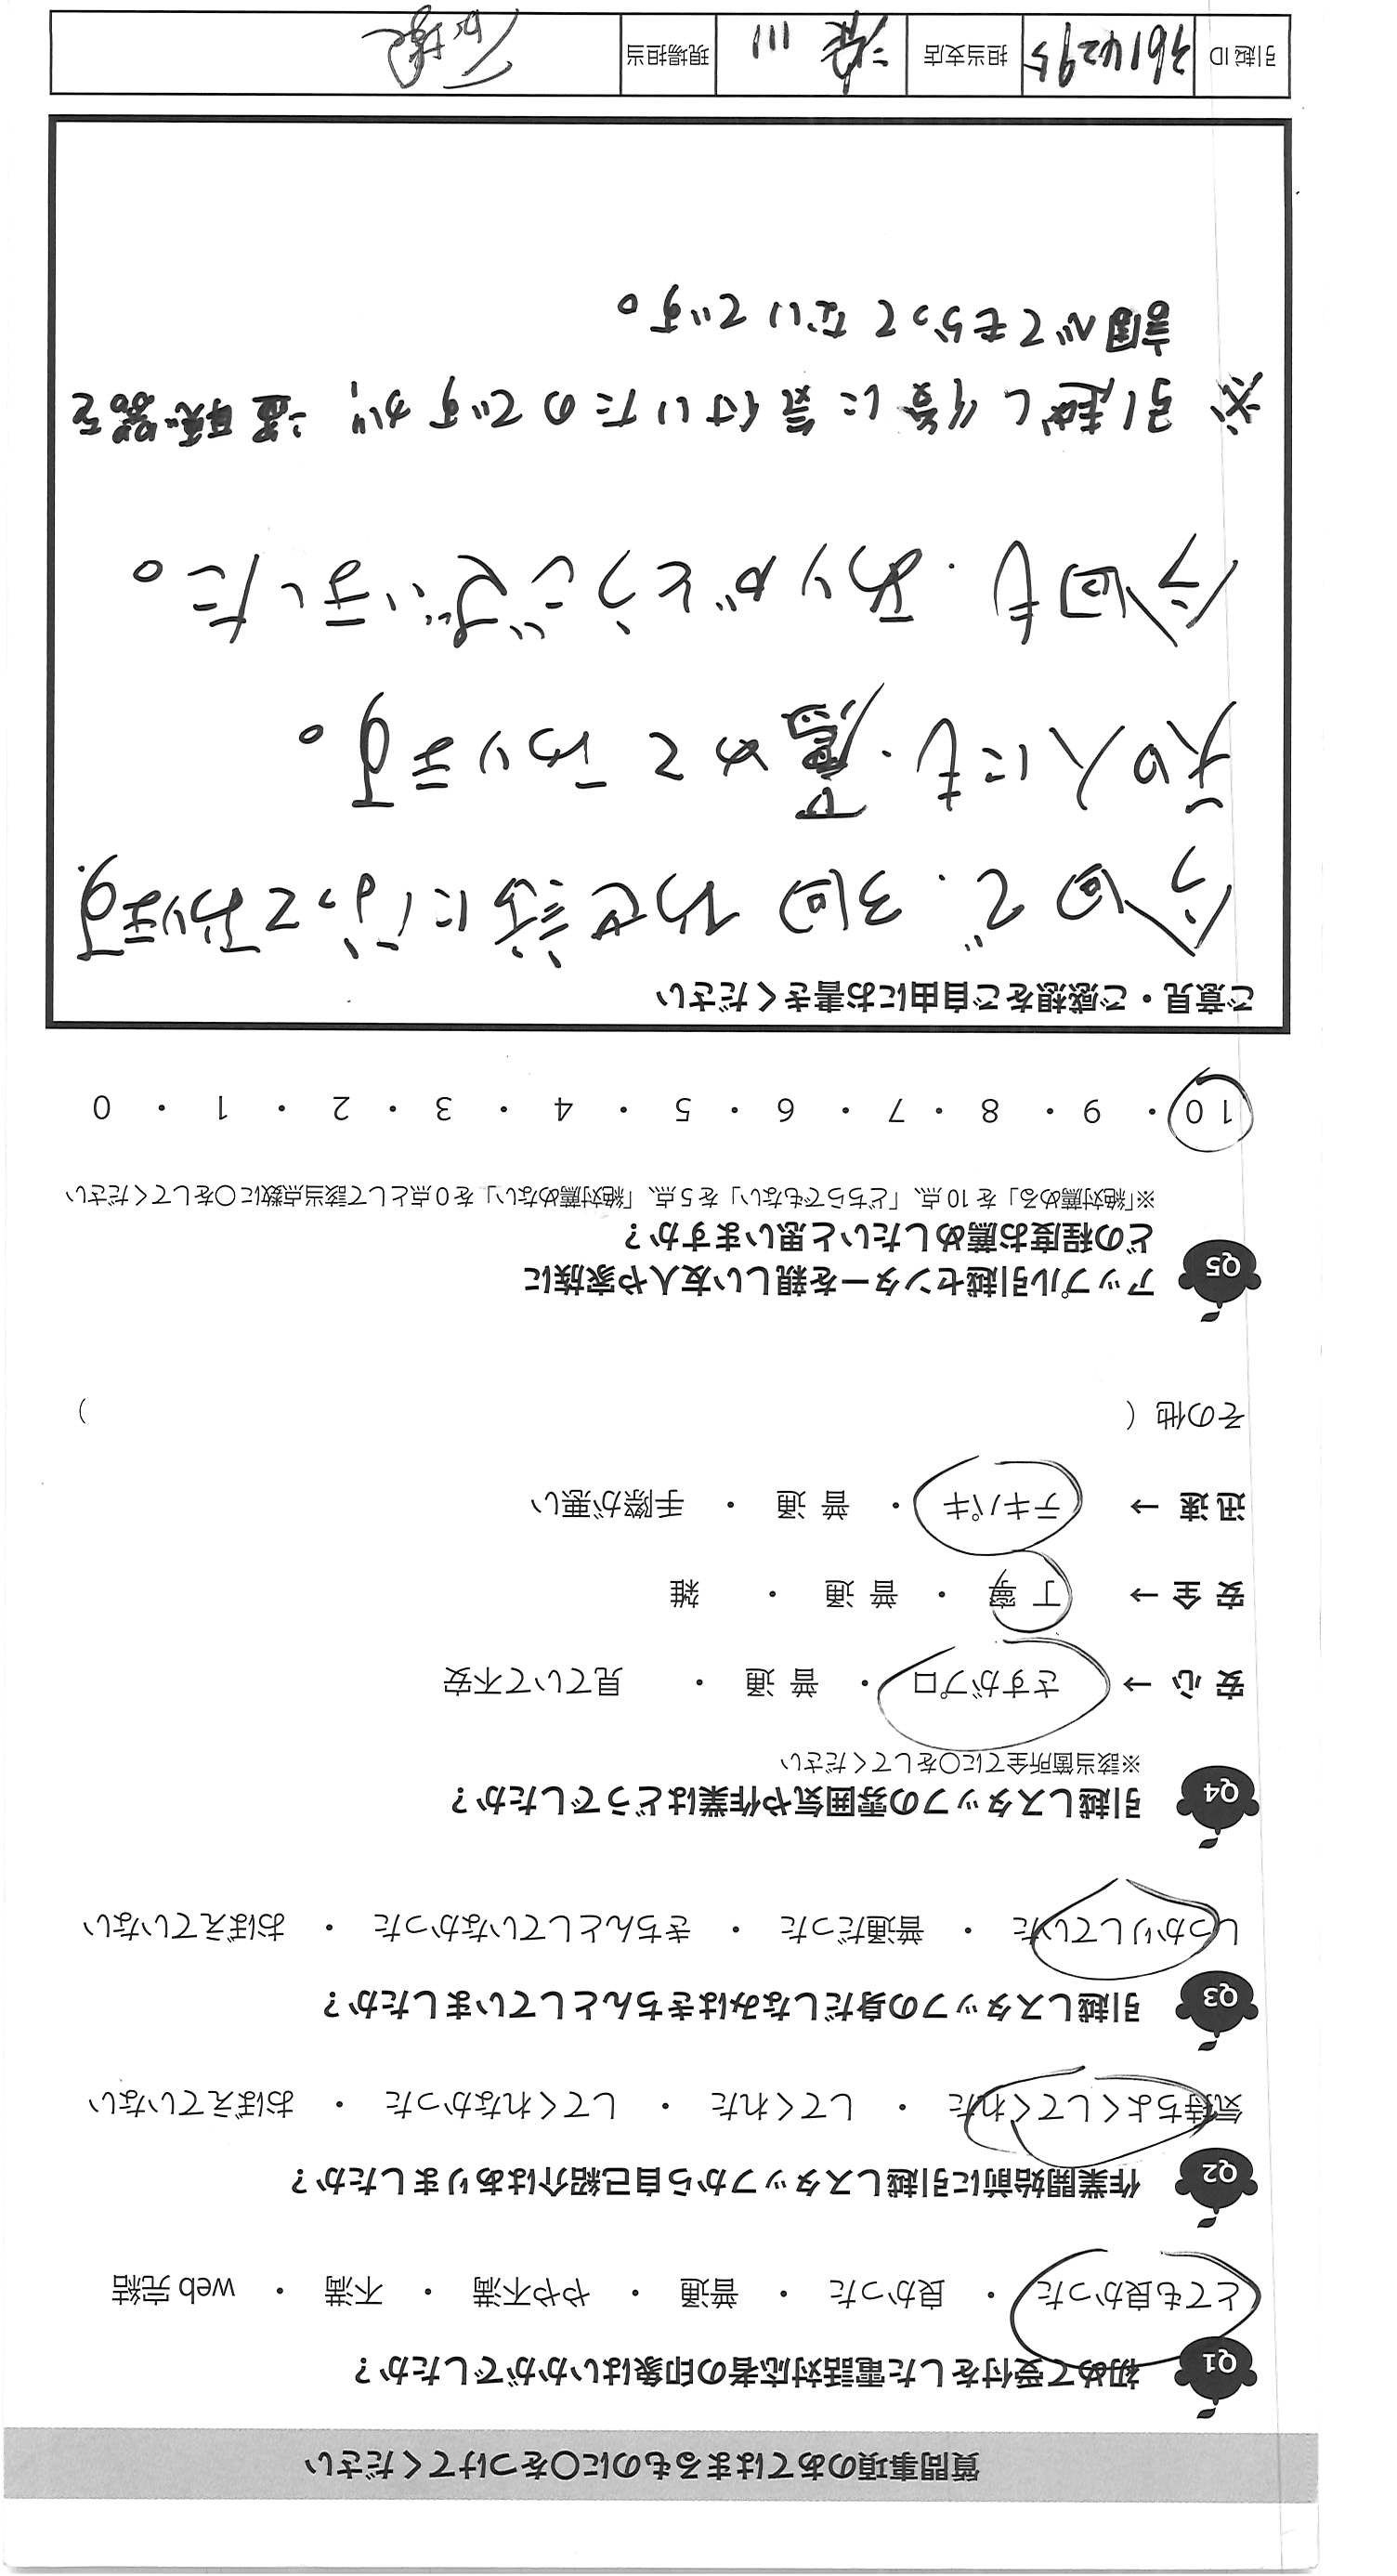 質問事項のあてはまるものに○をつけてください
Q1 初めて受付をした電話対応者の印象はいかがでしたか？
とても良かった ・ 良かった ・ 普通 ・ やや不満 ・ 不満 ・ web 完結
Q2 作業開始前に引越しスタッフから自己紹介はありましたか？
気持ちよくしてくれた ・ してくれた ・ してくれなかった ・ おぼえていない
Q3 引越しスタッフの身だしなみはきちんとしていましたか？
しっかりしていた ・ 普通だった ・ きちんとしていなかった ・ おぼえていない
Q4 引越しスタッフの雰囲気や作業はどうでしたか？
※該当箇所全てに○をしてください
安心 → さすがプロ ・ 普通 ・ 見ていて不安
安全 → 丁寧 ・ 普通 ・ 雑
迅速 → テキパキ ・ 普通 ・ 手際が悪い
その他（ ）
Q5 アップル引越センターを親しい友人や家族に
どの程度お薦めしたいと思いますか？
※「絶対薦める」を 10 点、「どちらでもない」を 5 点、「絶対薦めない」を 0 点として該当点数に○をしてください
10 ・ 9 ・ 8 ・ 7 ・ 6 ・ 5 ・ 4 ・ 3 ・ 2 ・ 1 ・ 0
ご意見・ご感想をご自由にお書きください
今回で、3回お世話になっております。
知人にも、薦めております。
今回も、ありがとうございました。
※引越し後に気付いたのですが、
調べてもらってないです。
引越ID 3614295 担当支店 川 現場担当